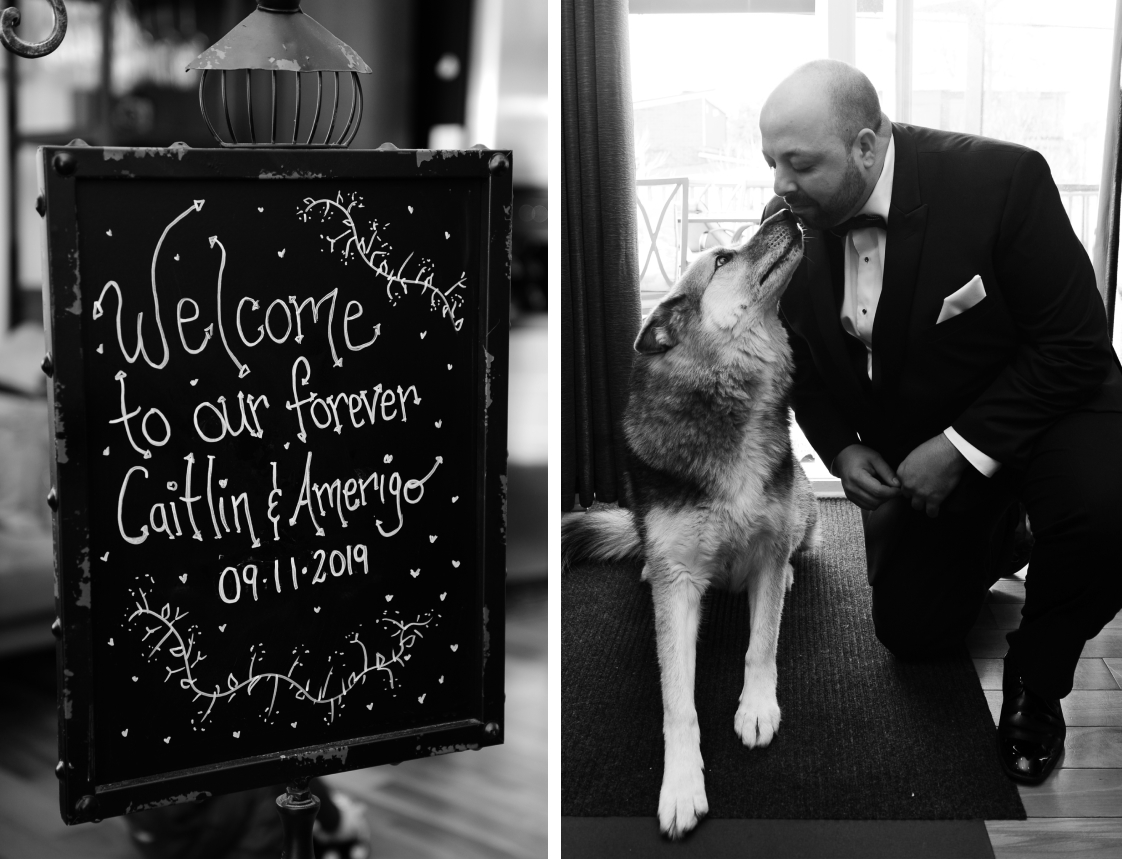 Welcome
to our forever
Caitlin & Amerigo
09.11.2019